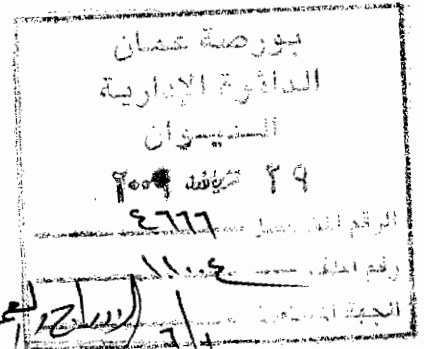 بورصة عمان
الدائرة الإدارية
الديوان
٢٩
الرقم المتسلسل ٤٦٦٦
رقم الملف ١١٠٠٤
الجهة المختصة الإدراج